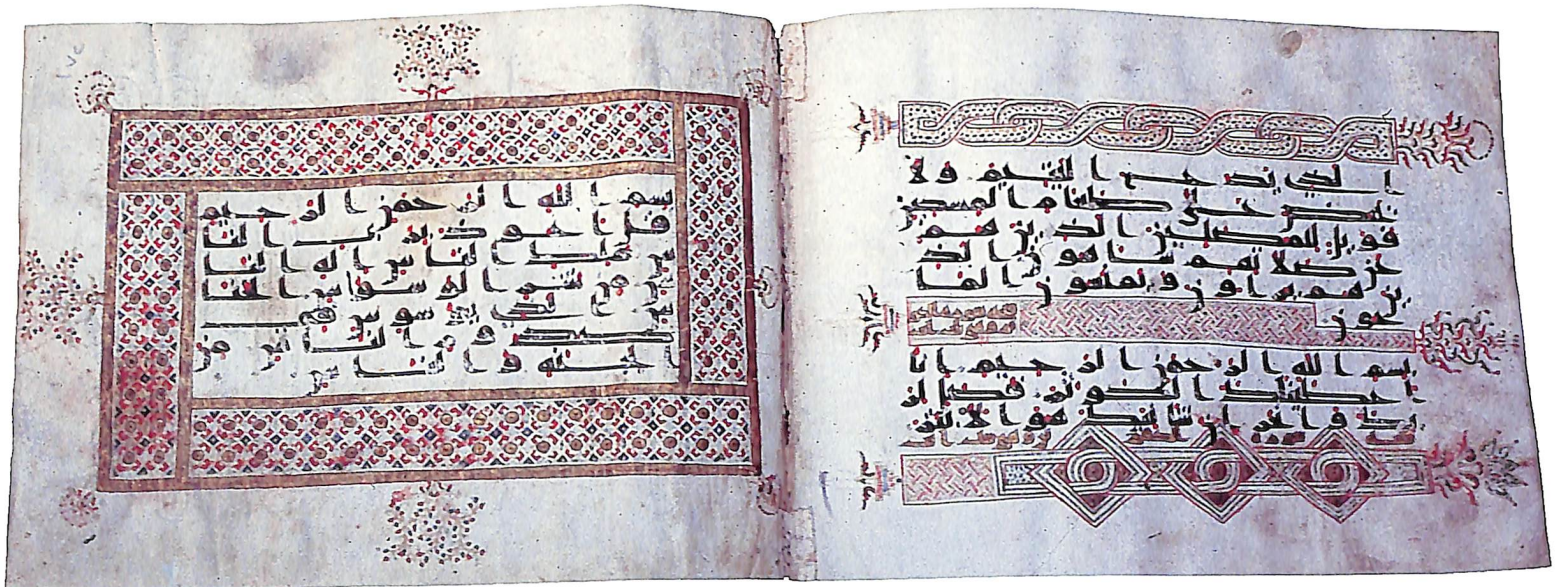 الذي يدع اليتيم ولا
يحض على طعام المسكين
فويل للمصلين الذين هم
عن صلاتهم ساهون الذ
ين هم يراون ويمنعون الما
عون
بسم الله الرحمن الرحيم انا
اعطينك الكوثر فصل لر
بك وانحر ان شانئك هو الابتر
بسم الله الرحمن الرحيم
قل اعوذ برب النا
س ملك الناس اله النا
س من شر الوسواس الخنا
س الذي يوسوس في
صدور الناس من
الجنة والناس